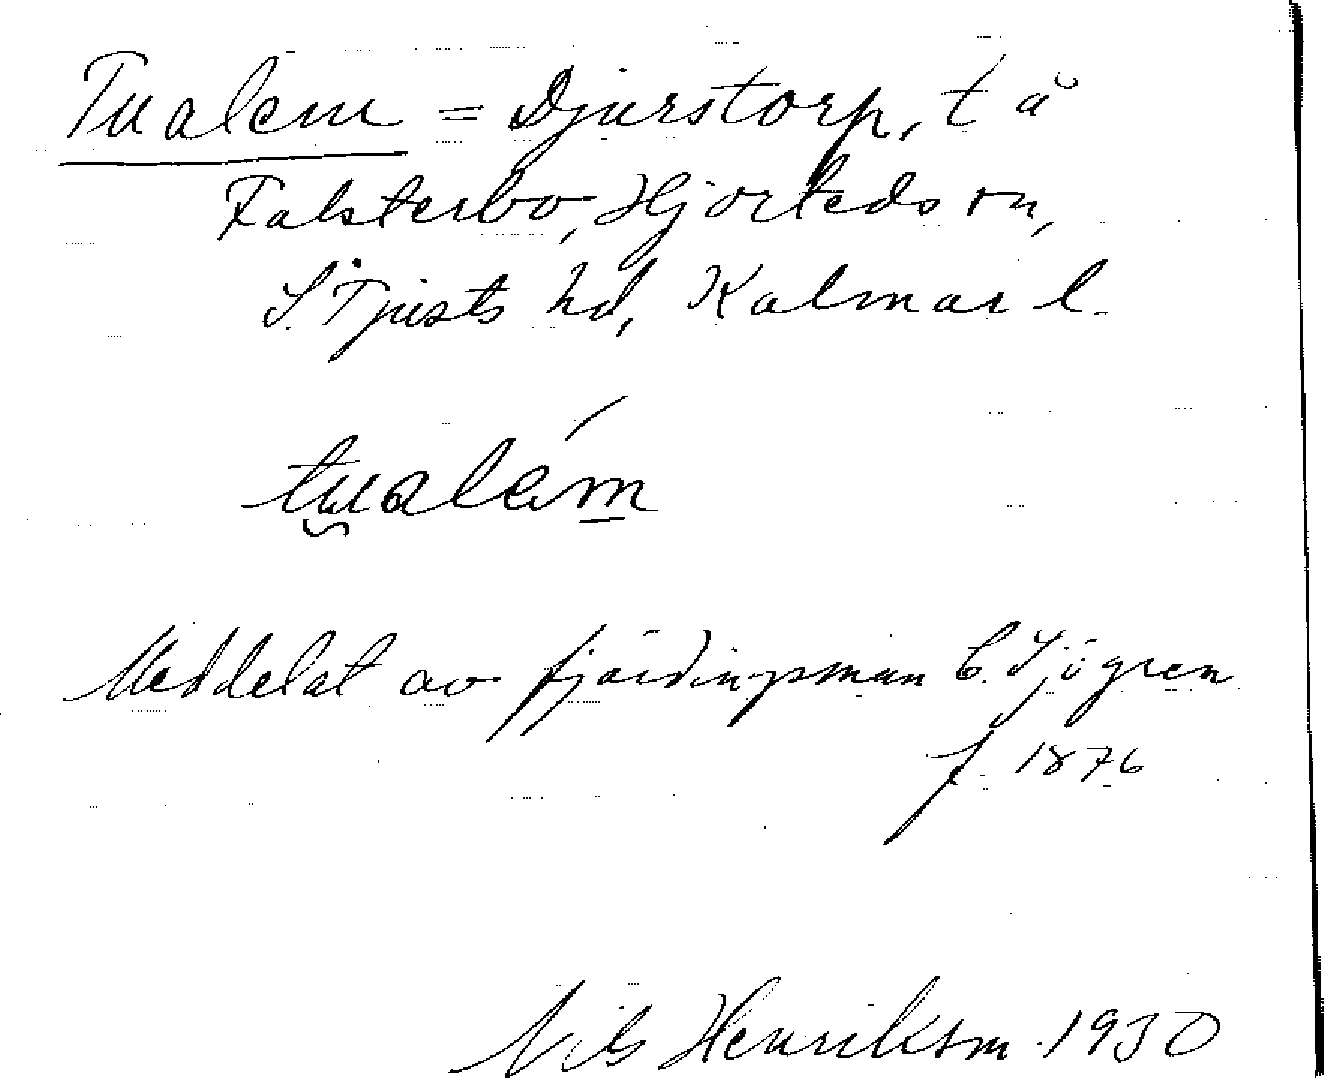 Tualem = Djurstorp, t å
Falsterbo, Hjorteds sn,
S. Tjusts hd, Kalmar l.
tualém
Meddelat av fjärdingsman C. Sjögren
f. 1876
Nils Henrikson 1930